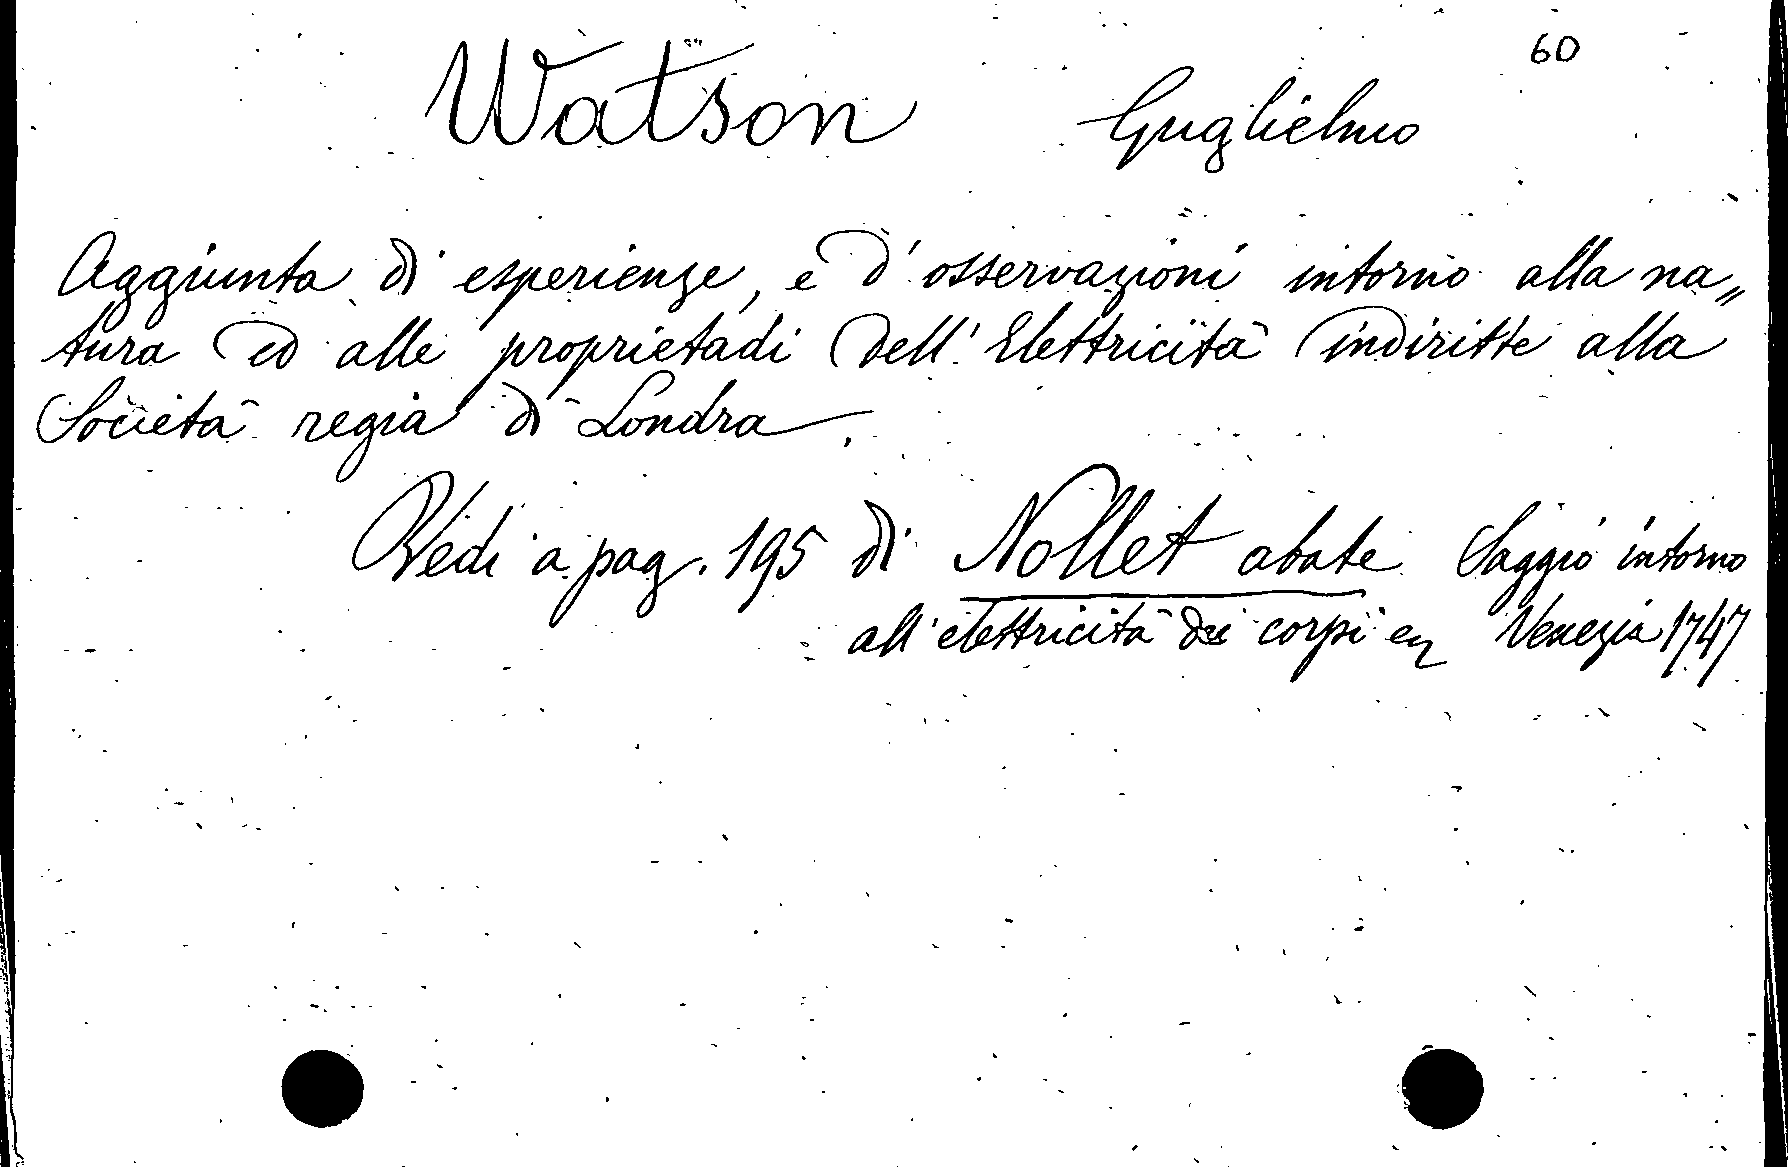 60
Watson Guglielmo
Aggiunta di esperienze, e d'osservazioni intorno alla na„
tura ed alle proprietadi dell'Elettricità indiritte alla
Società regia di Londra.
Vedi a pag. 195 di Nollet abate Saggio intorno
all'elettricità dei corpi Venezia 1747